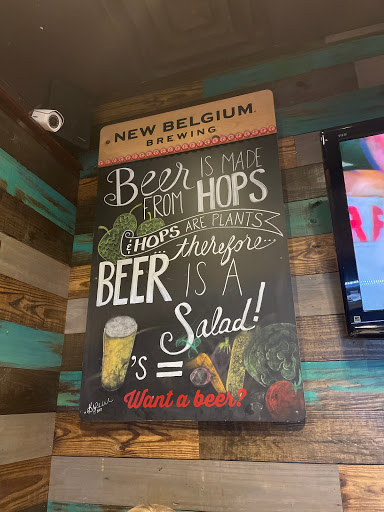 NEW BELGIUM.
BREWING
Beer IS MADE
FROM HOPS
& HOPS ARE PLANTS
therefore...
BEER IS A
Salad!
's =
Want a beer?